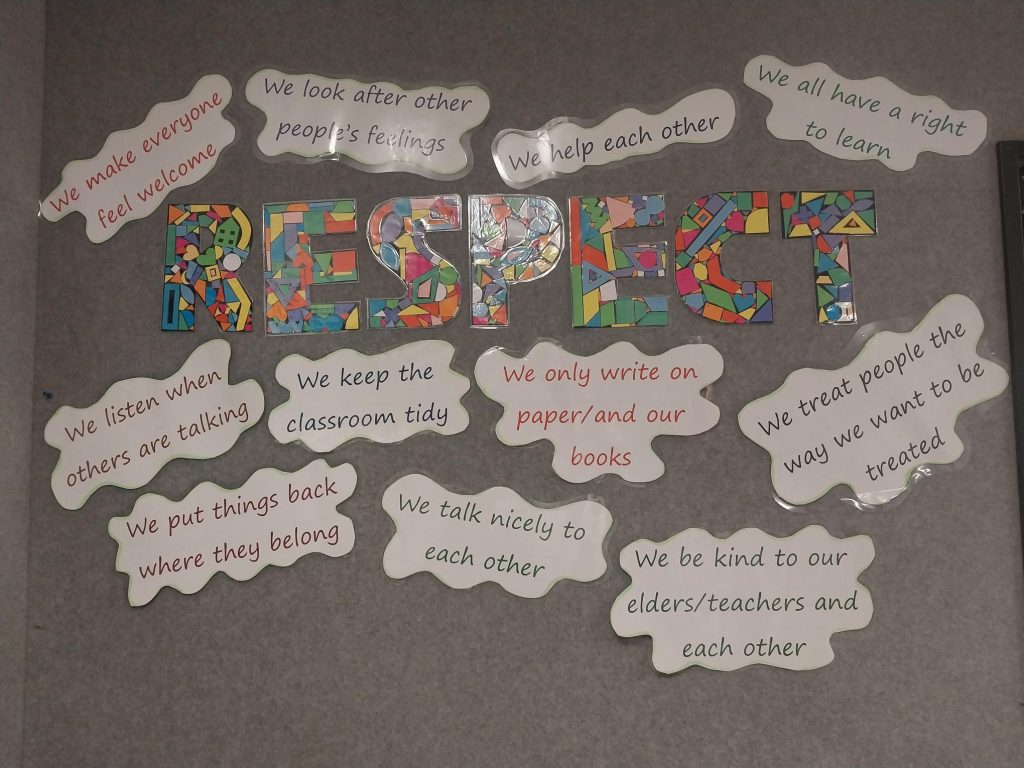 We make everyone
feel welcome
We look after other
people's feelings
We help each other
We all have a right
to learn
RESPECT
We listen when
others are talking
We keep the
classroom tidy
We only write on
paper/and our
books
We treat people the
way we want to be
treated
We put things back
where they belong
We talk nicely to
each other
We be kind to our
elders/teachers and
each other